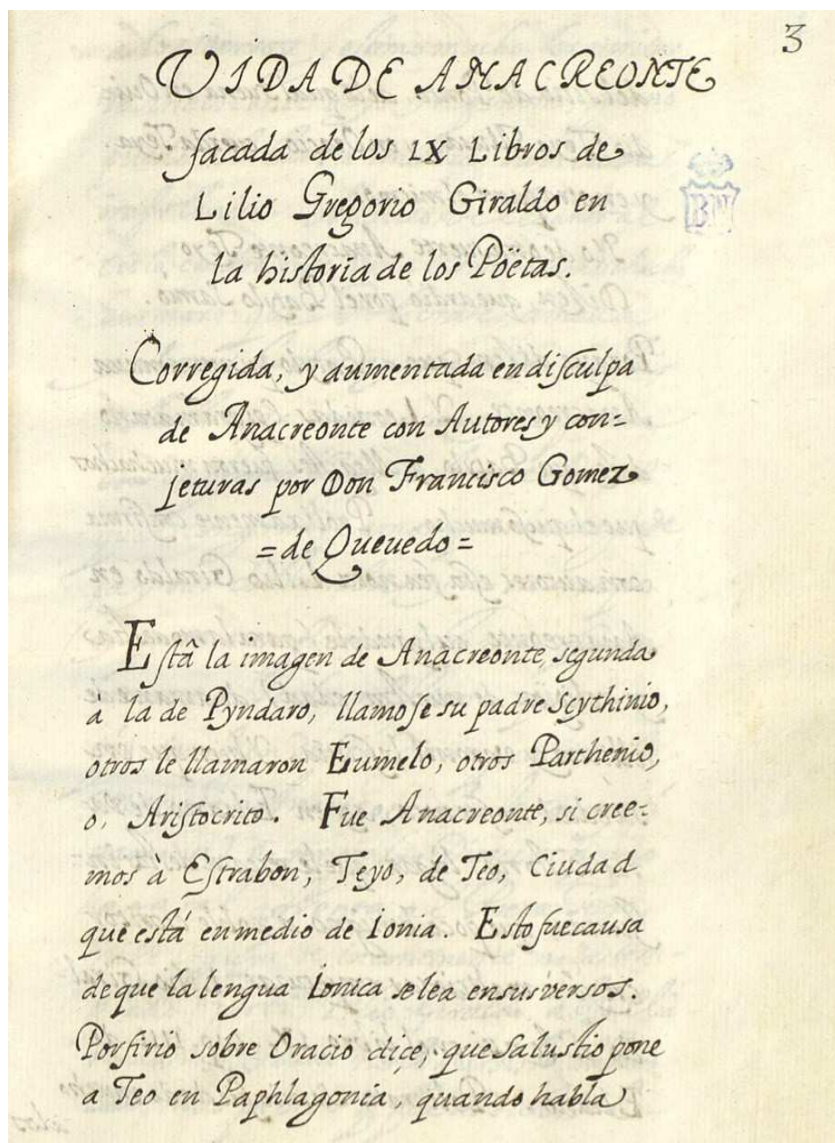 3
VIDA DE ANACREONTE
sacada de los IX Libros de
Lilio Gregorio Giraldo en
la historia de los Pöetas.
Corregida, y aumentada en disculpa
de Anacreonte con Autores y con-
jeturas por Don Francisco Gomez
= de Queuedo =
Està la imagen de Anacreonte, segunda
à la de Pyndaro, llamose su padre Scythinio,
otros le llamaron Eumelo, otros Parthenio,
o, Aristocrito. Fue Anacreonte, si cree-
mos à Estrabon, Teyo, de Teo, Ciudad
que está en medio de Ionia. Esto fue causa
de que la lengua Ionica se lea en sus versos.
Porfirio sobre Oracio dice, que Salustio pone
a Teo en Paphlagonia, quando habla
BN